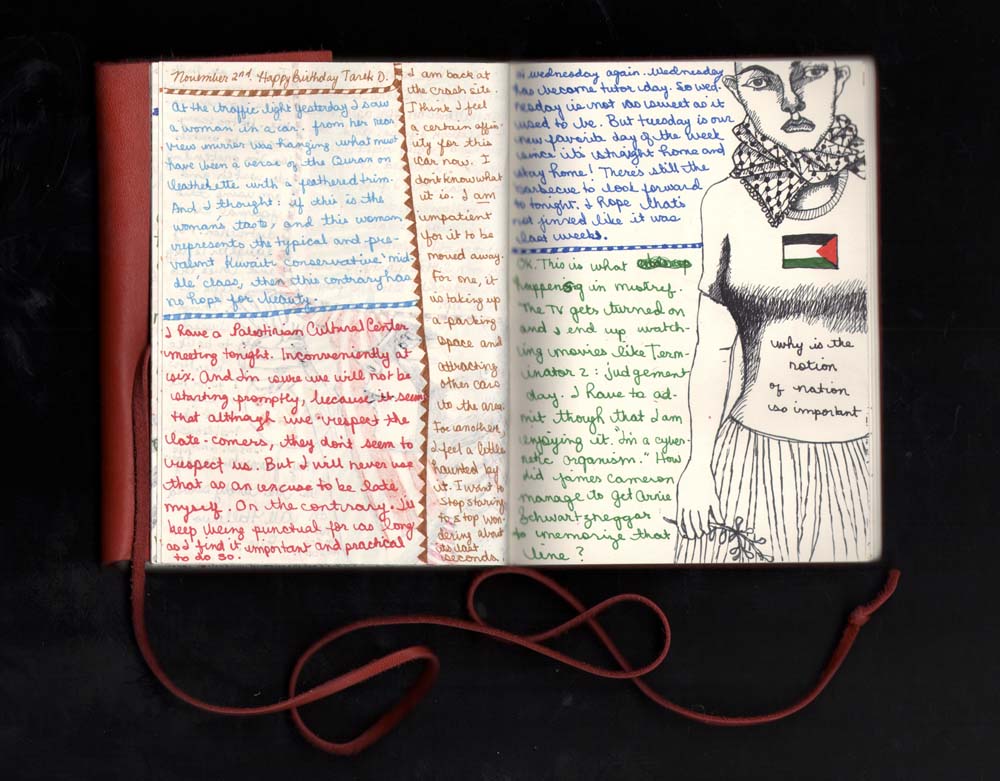 November 2nd. Happy Birthday Tarek D.
At the traffic light yesterday I saw
a woman in a car. from her rear
view mirror was hanging what must
have been a verse of the Quran on
leathekette with a feathered trim.
And I thought: if this is the
woman's taste, and this woman
represents the typical and pre-
valent Kuwaiti conservative 'mid-
dle' class, then this contrary has
no hope for beauty.
I have a Palestinian Cultural Center
meeting tonight. Inconveniently at
six. And I'm sure we will not be
starting promptly, because it seems
that although we respect the
late-comers, they don't seem to
respect us. But I will never use
that as an excuse to be late
myself. On the contrary. I'll
keep being punctual for as long
as I find it important and practical
to do so.
I am back at
the crash site.
I think I feel
a certain affin-
ity for this
car now. I
don't know what
it is. I am
impatient
for it to be
moved away.
For one, it
is taking up
a parking
space and
attracting
other cars
to the area.
For another,
I feel a little
haunted by
it. I want to
stop staring
to stop won-
dering about
its last
seconds.
wednesday again. Wednesday
has become tutor day. So wed-
nesday is not as sweet as it
used to be. But tuesday is our
new favorite day of the week
since it's straight home and
stay home! There's still the
barbecue to look forward
to tonight. I hope that's
not jinxed like it was
last week.
OK. This is what
happens in mishref.
The TV gets turned on
and I end up watch-
ing movies like Term-
inator 2: judgement
day. I have to ad-
mit though that I am
enjoying it. "I'm a cyber-
netic organism." How
did james cameron
manage to get Arnie
Schwartzneggar
to memorize that
line?
why is the
notion
of nation
so important